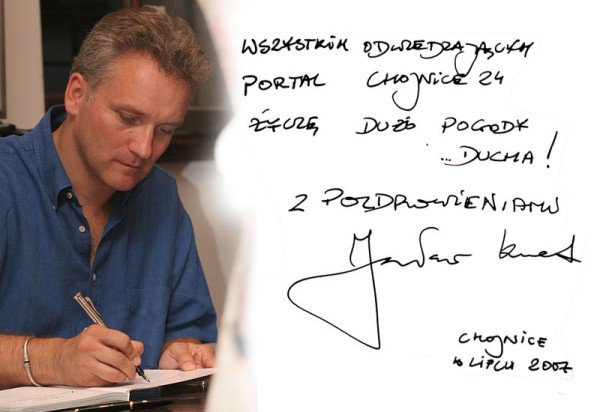 WSZYSTKIM ODWIEDZAJĄCYM
PORTAL CHOJNICE 24
ŻYCZĘ DUŻO POGODY
...DUCHA!
Z POZDROWIENIAMI
Jarosław Kret
CHOJNICE
10 LIPCA 2007